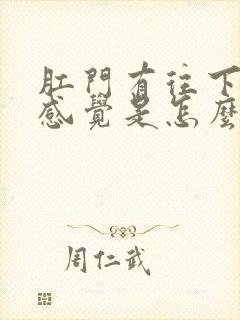 肛門有往下
感覺是怎麼
周仁武